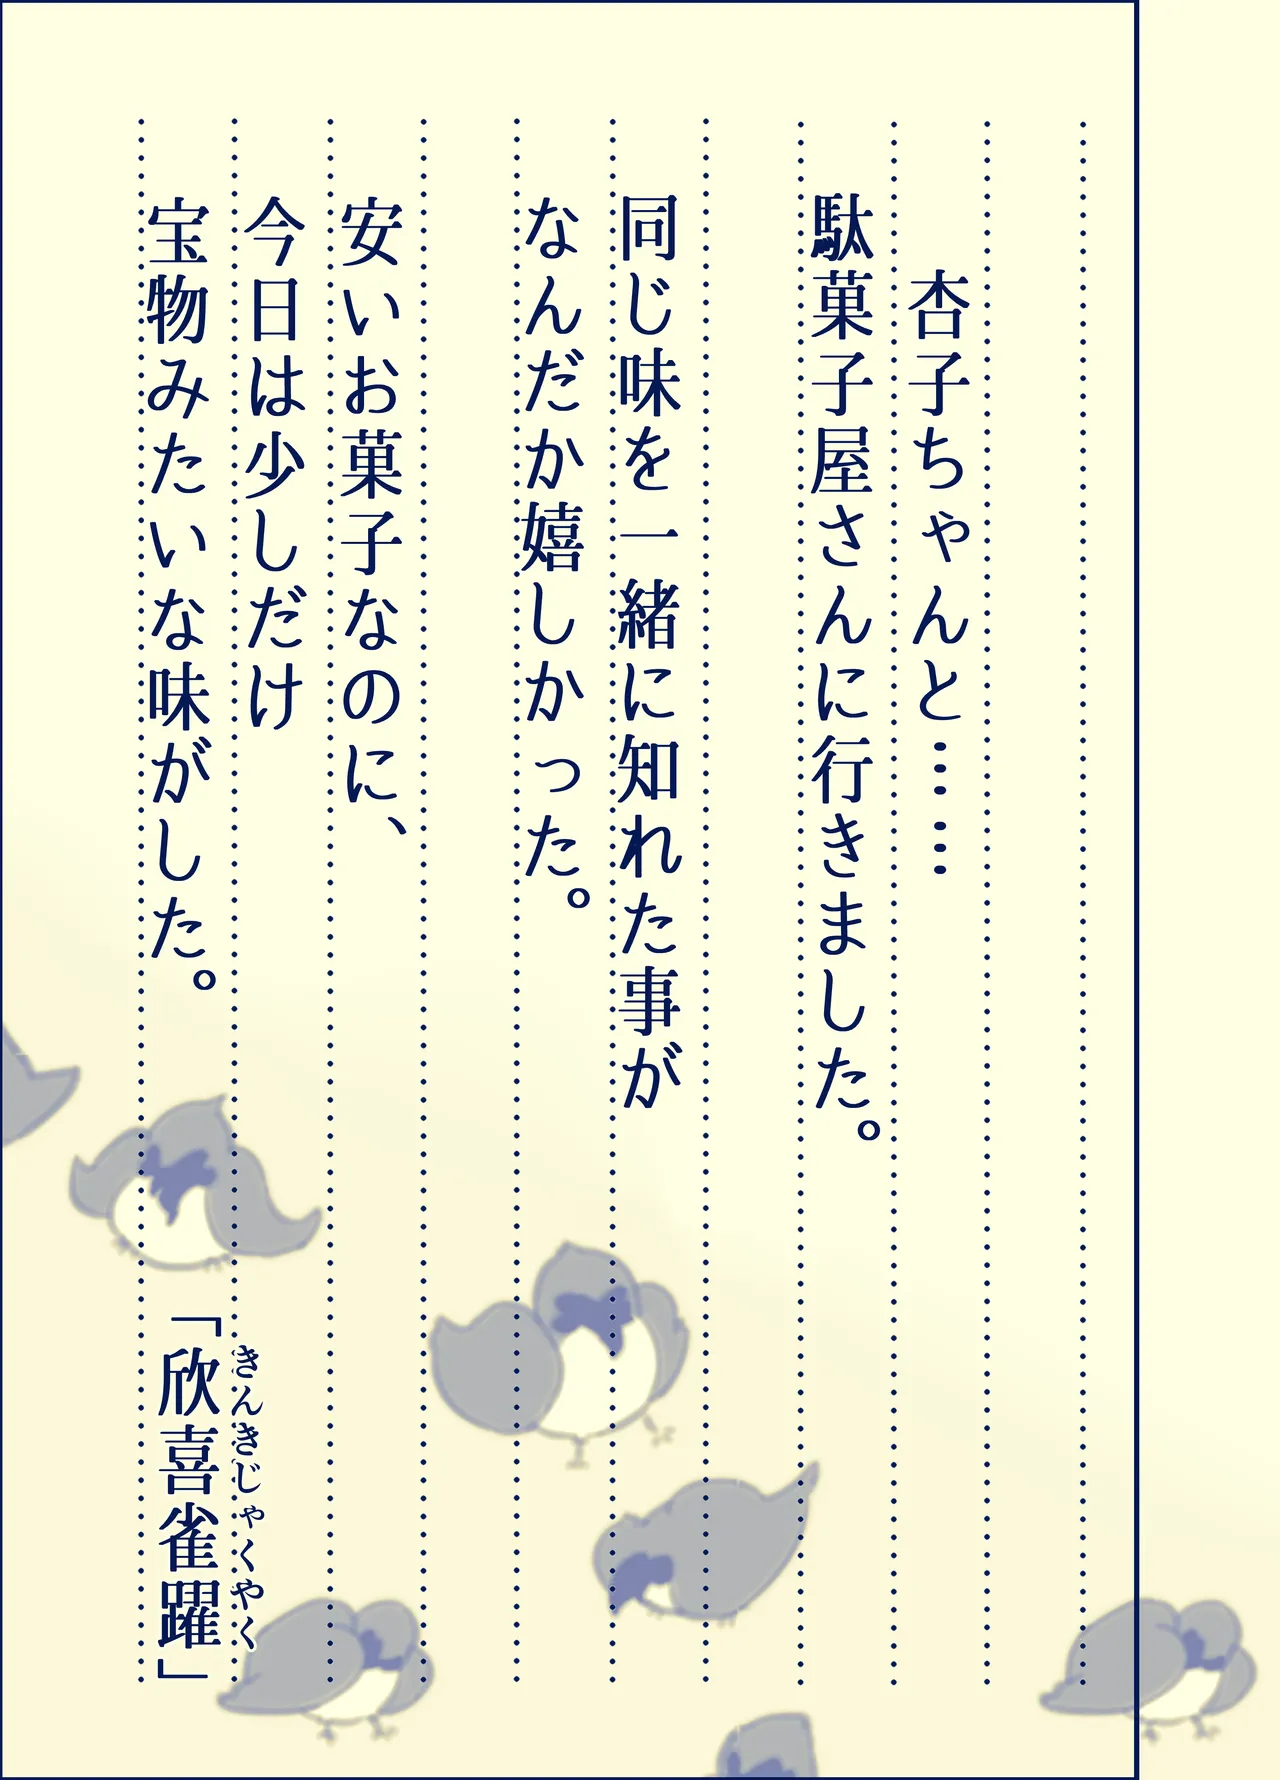 杏子ちゃんと……
駄菓子屋さんに行きました。
同じ味を一緒に知れた事が
なんだか嬉しかった。
安いお菓子なのに、
今日は少しだけ
宝物みたいな味がした。
「欣喜雀躍」
きんきじゃくやく